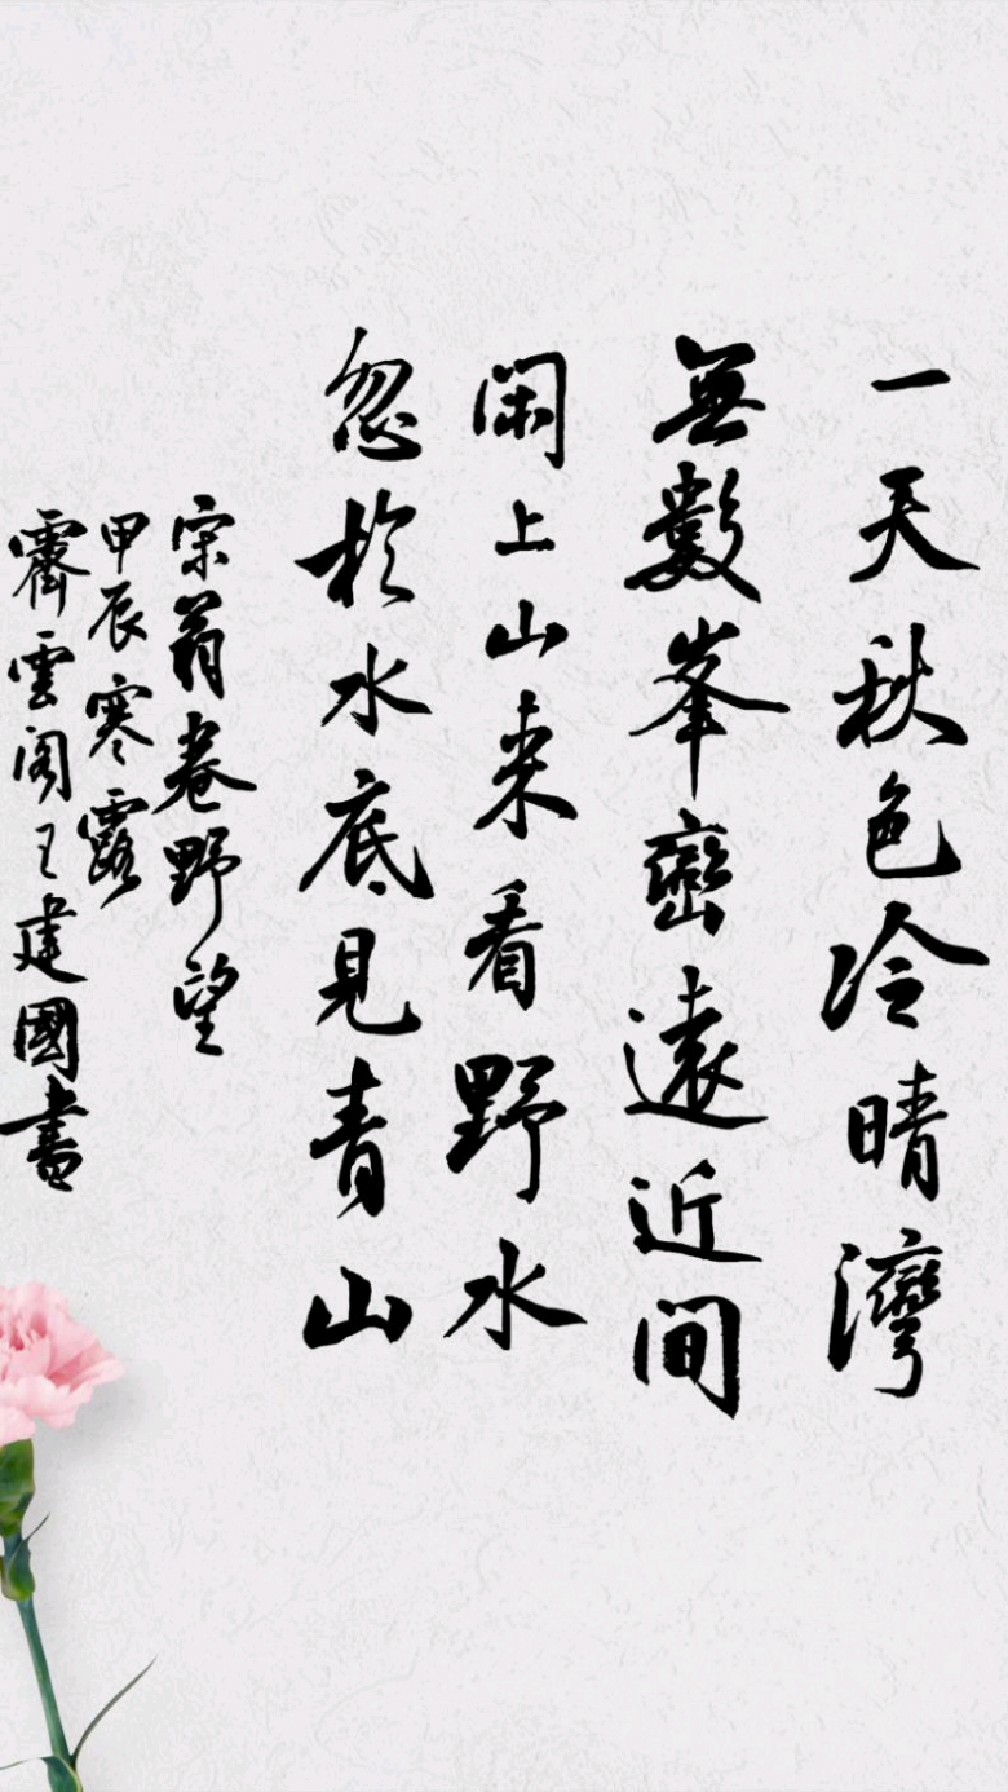 一天秋色冷晴灣
無數峯巒遠近間
閑上山来看野水
忽於水底見青山
宋翁卷野望
甲辰寒露
霽雲閣王建國書